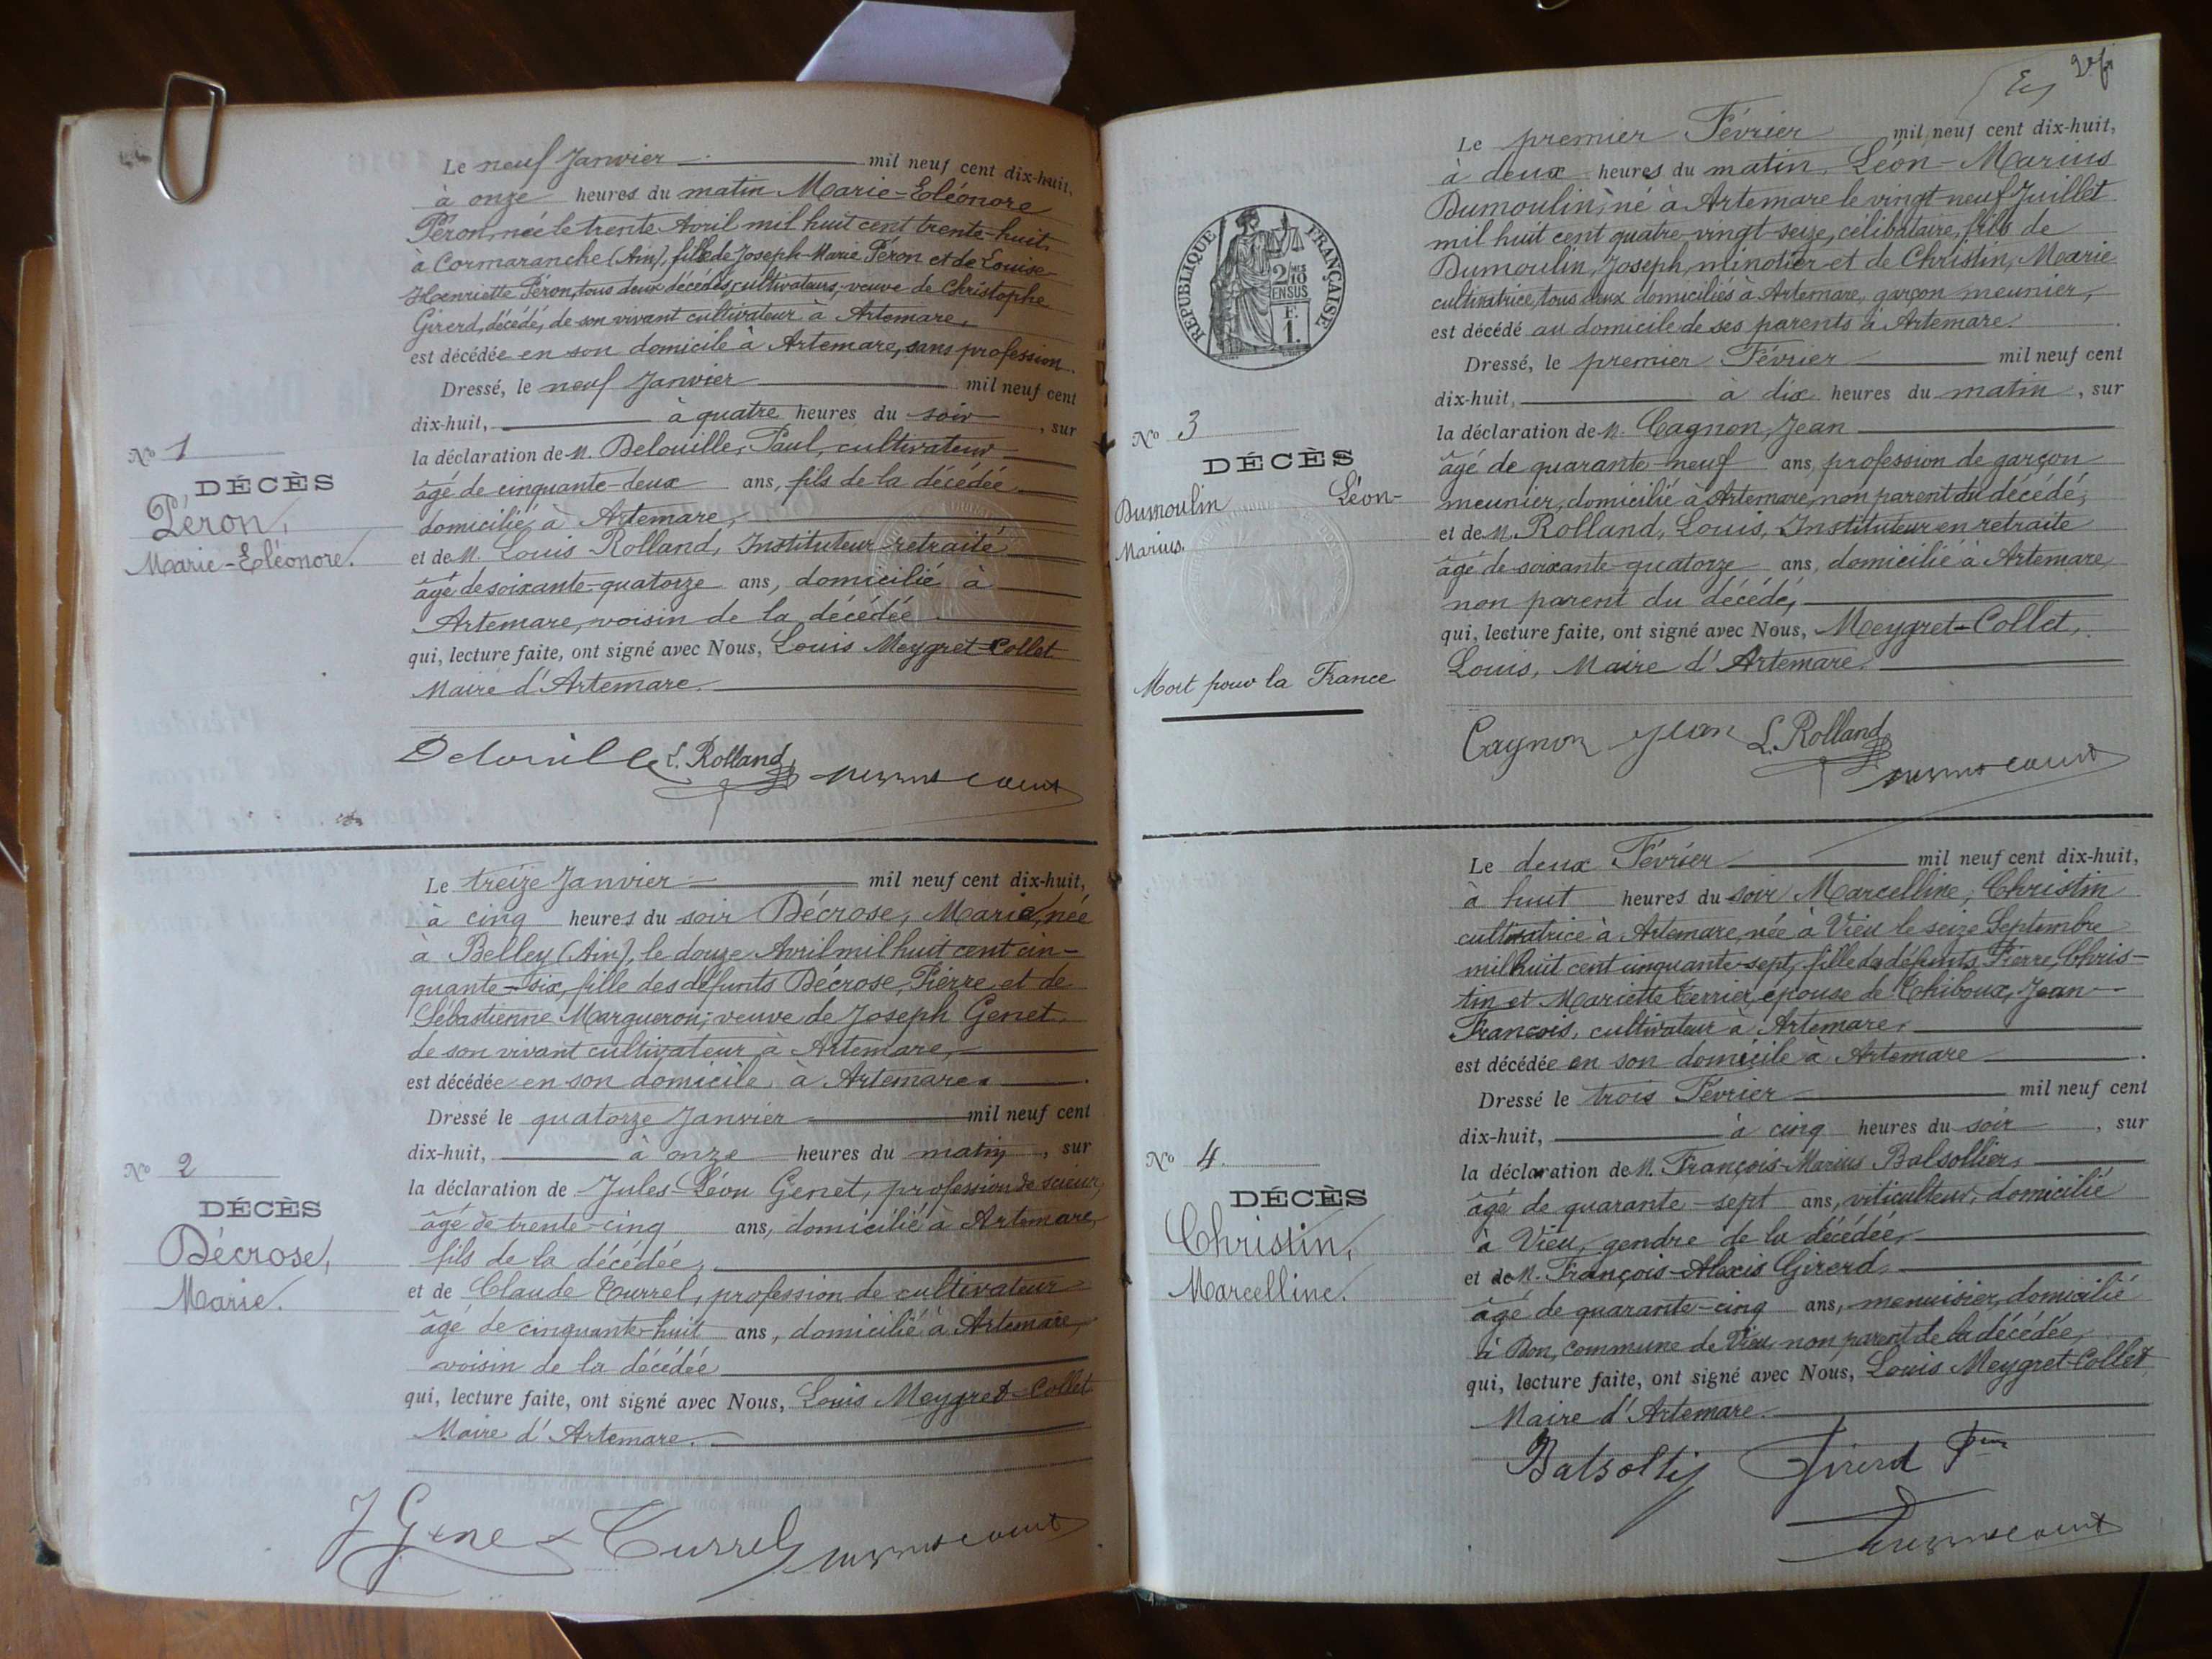 Le neuf Janvier mil neuf cent dix-huit,
à onze heures du matin Marie-Eléonore
Péron, née le trente Avril mil huit cent trente-huit
à Cormaranche (Ain), fille de Joseph-Marie Péron et de Louise
Henriette Péron, tous deux décédés, cultivateurs, veuve de Christophe
Girerd, décédé, de son vivant cultivateur à Artemare,
est décédée en son domicile à Artemare, sans profession.
Dressé, le neuf Janvier mil neuf cent
dix-huit, à quatre heures du soir, sur
la déclaration de M. Delouille, Paul, cultivateur
âgé de cinquante-deux ans, fils de la décédée
domicilié à Artemare,
et de M. Louis Rolland, Instituteur retraité
âgé de soixante-quatorze ans, domicilié à
Artemare, voisin de la décédée
qui, lecture faite, ont signé avec Nous, Louis Meygret-Collet
Maire d'Artemare.
No 1
DÉCÈS
Péron,
Marie-Eléonore.
Delouille L. Rolland
Le treize Janvier mil neuf cent dix-huit,
à cinq heures du soir Décrose, Marie, née
à Belley (Ain), le douze Avril mil huit cent cin-
quante-six, fille des défunts Décrose, Pierre, et de
Sébastienne Margueron; veuve de Joseph Genet
de son vivant cultivateur à Artemare,
est décédée en son domicile à Artemare.
Dressé le quatorze Janvier mil neuf cent
dix-huit, à onze heures du matin, sur
la déclaration de Jules-Léon Genet, profession de scieur,
âgé de trente-cinq ans, domicilié à Artemare,
fils de la décédée,
et de Claude Turrel, profession de cultivateur
âgé de cinquante-huit ans, domicilié à Artemare,
voisin de la décédée
qui, lecture faite, ont signé avec Nous, Louis Meygret-Collet
Maire d'Artemare.
No 2
DÉCÈS
Décrose,
Marie.
J Genet Turrel
Le premier Février mil neuf cent dix-huit,
à deux heures du matin, Léon-Marius
Dumoulin, né à Artemare le vingt-neuf Juillet
mil huit cent quatre-vingt-seize, célibataire, fils de
Dumoulin, Joseph, minotier et de Christin, Marie
cultivatrice, tous deux domiciliés à Artemare, garçon meunier,
est décédé au domicile de ses parents à Artemare.
Dressé, le premier Février mil neuf cent
dix-huit, à dix heures du matin, sur
la déclaration de M. Cagnon, Jean
âgé de quarante-neuf ans, profession de garçon
meunier, domicilié à Artemare, non parent du décédé,
et de M. Rolland, Louis, Instituteur en retraite
âgé de soixante-quatorze ans, domicilié à Artemare,
non parent du décédé,
qui, lecture faite, ont signé avec Nous, Meygret-Collet,
Louis, Maire d'Artemare.
RÉPUBLIQUE FRANÇAISE
2/10
EN SUS
F.
1.
No 3
DÉCÈS
Dumoulin Léon-
Marius.
Mort pour la France
Cagnon Jean L. Rolland
Le deux Février mil neuf cent dix-huit,
à huit heures du soir Marcelline, Christin
cultivatrice à Artemare, née à Vieu le seize Septembre
mil huit cent cinquante-sept, fille des défunts Pierre, Chris-
tin et Mariette Terrier, épouse de Chiboux, Jean
François, cultivateur à Artemare,
est décédée en son domicile à Artemare
Dressé le trois Février mil neuf cent
dix-huit, à cinq heures du soir, sur
la déclaration de M. François-Marius Balsollier,
âgé de quarante-sept ans, viticulteur, domicilié
à Vieu, gendre de la décédée,
et de M. François-Alexis Girerd,
âgé de quarante-cinq ans, menuisier, domicilié
à Don, commune de Vieu, non parent de la décédée,
qui, lecture faite, ont signé avec Nous, Louis Meygret-Collet
Maire d'Artemare.
No 4.
DÉCÈS
Christin,
Marcelline.
Girerd